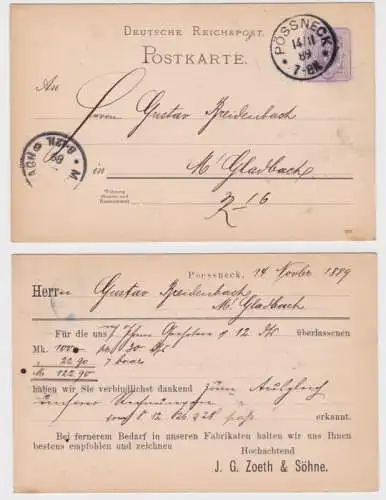 DEUTSCHE REICHSPOST.
POSTKARTE.
PÖSSNECK
14/11
89
7-8N.
An
Herrn Gustav Breidenbach
in M'Gladbach
Poessneck, 14 Novbr 1889
Herrn Gustav Breidenbach
M'Gladbach
Für die uns überlassenen
Mk. 100
22.90
M 122.90
haben wir Sie verbindlichst dankend zum Ausgleich
unserer Rechnungen
erkannt.
Bei fernerem Bedarf in unseren Fabrikaten halten wir uns Ihnen
bestens empfohlen und zeichnen
Hochachtend
J. G. Zoeth & Söhne.